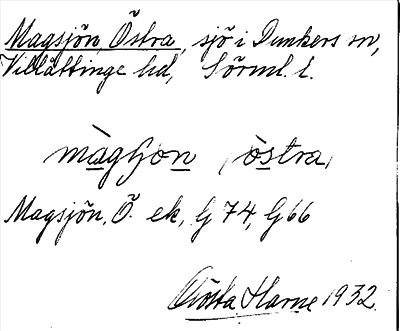 Magsjön, Östra, sjö i Dunkers sn,
Villåttinge hd, Sörml. l.
màgʃon (östra)
Magsjön, Ö. ek, G 74, G 66
Gösta Harne 1932.